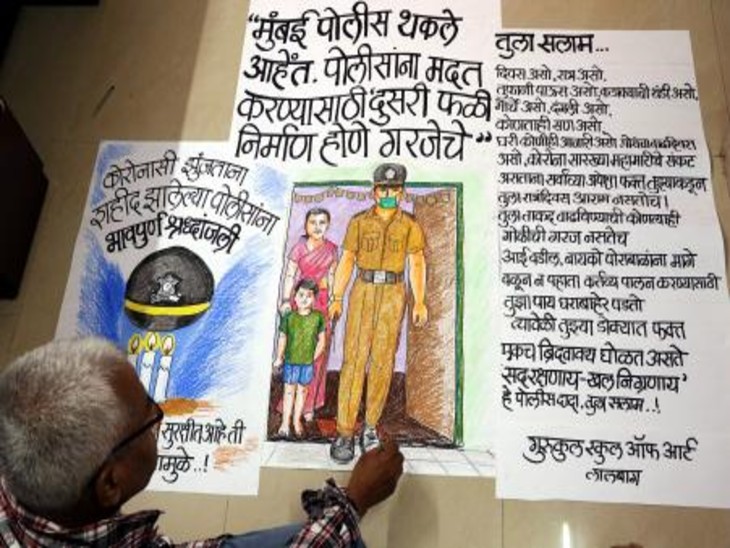 "मुंबई पोलीस थकले
आहेत. पोलीसांना मदत
करण्यासाठी 'दुसरी फळी'
निर्माण होणे गरजेचे"
कोरोनाशी झुंजताना
शहीद झालेल्या पोलीसांना
भावपुर्ण श्रध्दांजली
सुरक्षीत आहे ती
मुळे..!
तुला सलाम...
दिवस असो, रात्र असो.
तुफानी पाऊस असो, कडाक्याची थंडी असो,
मोर्चे असो, दंगली असो.
कोणताही सण असो.
घरी कोणीही आजारी असो
असो, कोरोना सारख्या महामारीचे संकट
असताना सर्वांच्या अपेक्षा फक्त तुझ्याकडून
तुला रात्रंदिवस आराम नसतोच!
तुला ताकद वाढविण्याची कोणत्याही
गोळीची गरज नसतेच
आई वडील, बायको पोराबाळांना मागे
वळून न पहाता कर्तव्य पालन करण्यासाठी
तुझा पाय घराबाहेर पडतो
त्यावेळी तुझ्या डोक्यात फक्त
एकच ब्रिदवाक्य घोळत असते
'सद्रक्षणाय-खल निग्रणाय'
हे पोलीस दादा, तुला सलाम..!
गुरुकुल स्कुल ऑफ आर्ट
लालबाग